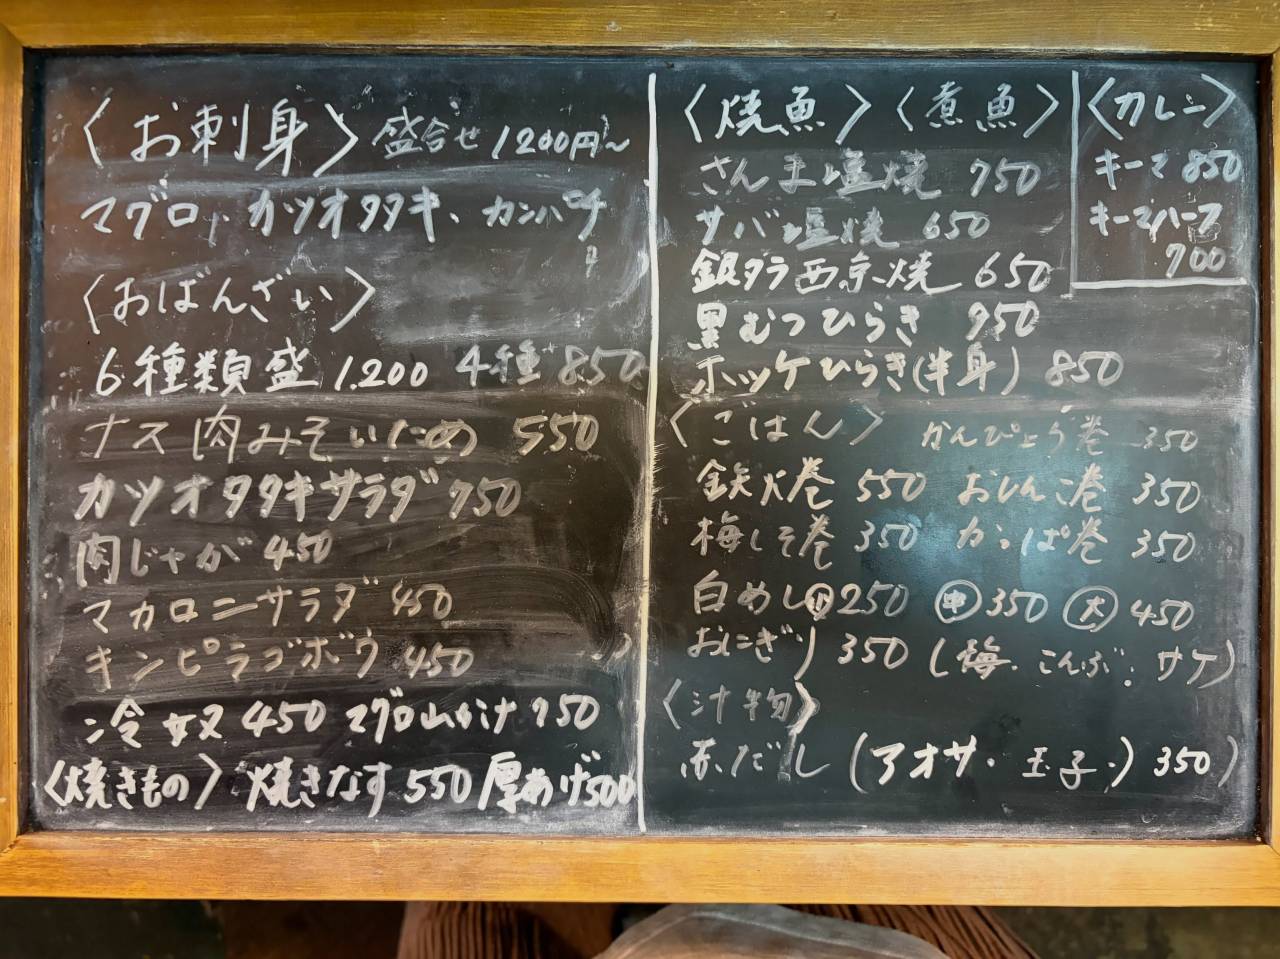 〈お刺身〉盛合せ 1200円〜
マグロ、カツオタタキ、カンパチ
〈おばんざい〉
6種類盛 1.200 4種 850
ナス肉みそいため 550
カツオタタキサラダ 750
肉じゃが 450
マカロニサラダ 450
キンピラゴボウ 450
冷奴 450 マグロ山かけ 750
〈焼きもの〉焼きなす 550 厚あげ 500
〈焼魚〉〈煮魚〉
さんま塩焼 750
サバ塩焼 650
銀ダラ西京焼 650
黒むつひらき 950
ホッケひらき(半身) 850
〈カレー〉
キーマ 850
キーマハーフ
700
〈ごはん〉 かんぴょう巻 350
鉄火巻 550 おしんこ巻 350
梅しそ巻 350 カッぱ巻 350
白めし㊙小250 ㊥350 大 450
おにぎり 350 (梅・こんぶ・サケ)
〈汁物〉
赤だし (アオサ・玉子・) 350